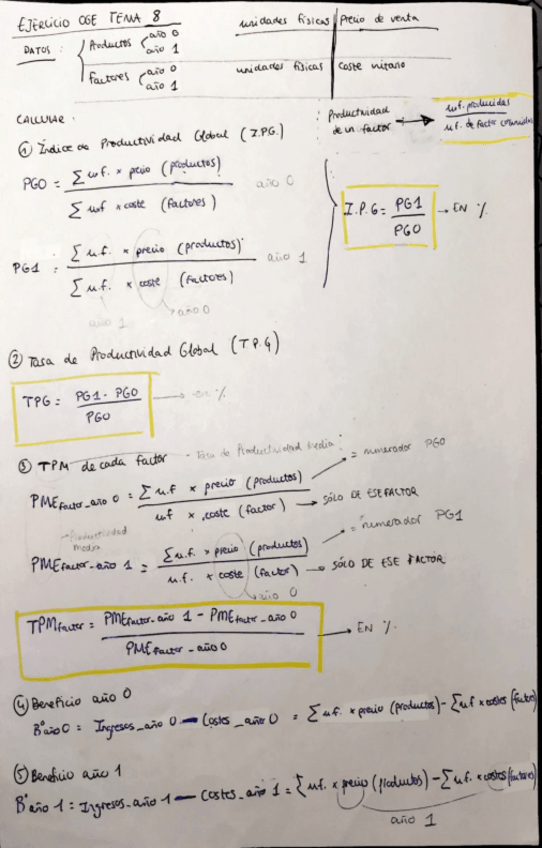 EJERCICIO OGE TEMA 8
unidades físicas | Precio de venta
DATOS : Productos año 0
año 1
Factores año 0
año 1
unidades físicas | Coste unitario
CALCULAR :
Productividad de un factor → u.f. producidas / u.f. de factor consumidas
① Índice de Productividad Global (I.P.G.)
PG0 = Σ u.f. x precio (productos) / Σ u.f x coste (factores) año 0
I.P.G = PG1 / PG0 → EN %
PG1 = Σ u.f. x precio (productos) / Σ u.f. x coste (factores) año 1
año 1 → año 0
② Tasa de Productividad Global (T.P.G)
TPG = PG1 - PG0 / PG0 → en %
③ TPM de cada factor - Tasa de Productividad Media :
PMEfactor_año 0 = Σ u.f x precio (productos) / u.f x coste (factor)
= numerador PG0
→ SÓLO DE ESE FACTOR
→ Productividad Media
PMEfactor-año 1 = Σ u.f. x precio (productos) / u.f. x coste (factor)
= numerador PG1
→ SÓLO DE ESE FACTOR
→ año 0
TPMfactor = PMEfactor-año 1 - PMEfactor_año 0 / PMEfactor-año 0 → EN %
④ Beneficio año 0
Bº año 0 = Ingresos_año 0 — Costes_año 0 = Σ u.f. x precio (productos) - Σ u.f x costes (factor)
⑤ Beneficio año 1
Bº año 1 = Ingresos_año 1 — Costes_año 1 = Σ u.f. x precio (productos) - Σ u.f. x costes (factores)
año 1